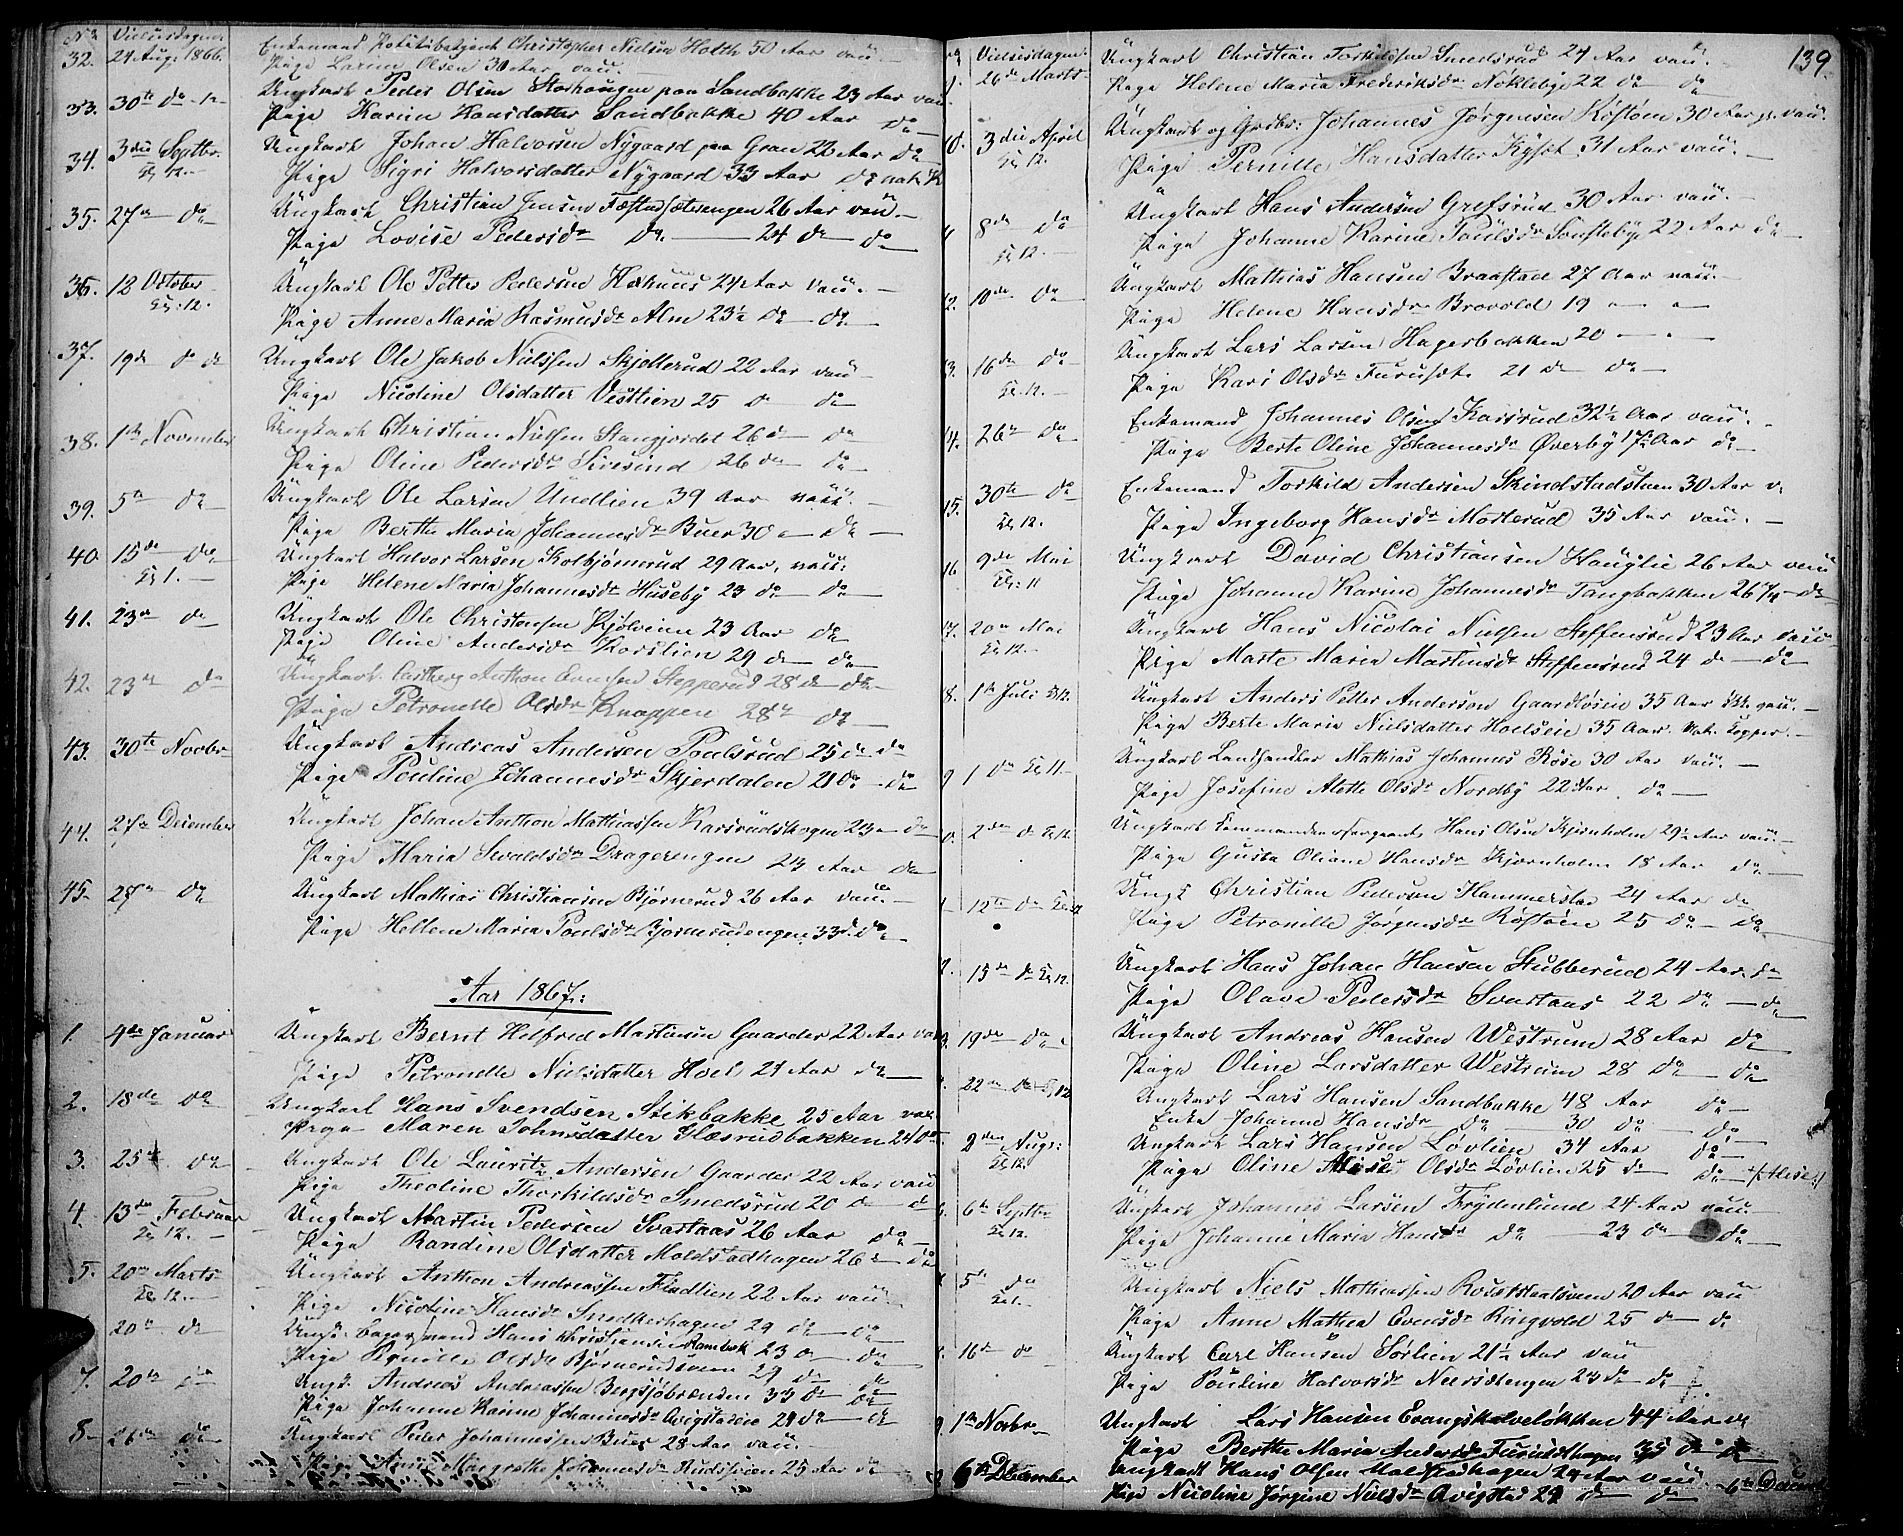 No Vielsesdagene
32. 24 Aug. 1866. Enkemand Politibetjent Christopher Nielsen Hoth 50 Aar vac.
Pige Larine Olsen 30 Aar vac.
33. 30te do Ungkarl Peder Olsen Storhaugen paa Sandbakke 23 Aar vac
Pige Karine Hansdatter Sandbakke 40 Aar do
34. 3die Septbr. Ungkarl Johan Halvorsen Nygaard paa Gran 22 Aar do
Kl 12. Pige Sigri Halvorsdatter Nygaard 33 Aar do nat. K
35. 27de do Ungkarl Christian Jensen Fæstadsæterengen 26 Aar vac.
Pige Lovise Pedersdr do 24 do do
36. 12 October Ungkarl Ole Petter Pedersen 24 Aar vac.
Kl: 12. Pige Anne Maria Rasmusdr Alm 23½ do do
37. 19de do Ungkarl Ole Jakob Nielssen Skjellerud 22 Aar vac
Pige Nicoline Olsdatter Vestlien 25 do
38. 1ste November Ungkarl Christian Nielsen Stangjordet 26 do do
Pige Oline Pedersdr Sivesind 26 do do
39. 5te do Ungkarl Ole Larsen Undlien 39 Aar vac.
Pige Berthe Maria Johannesdr Buer 30 do
40. 15de do Ungkarl Halvor Larsen Kolbjørnrud 29 Aar, vac.
Kl 1. Pige Helene Maria Johannesdr Huseby 23 do do
41. 23de do Ungkarl Ole Christensen Kjølvien 23 Aar do
Pige Oline Andersdr Korslien 29 do do
42. 23de do Ungkarl Anthon Stepperud 28 do do
Pige Petronelle Olsdr Knappen 28 do
43. 30te Novbr Ungkarl Andreas Andersen Poulsrud 25 do do
Pige Pouline Johannesdr Skjerdalen 21 do do
44. 27de December Ungkarl Johan Anthon Mathiassen Karsrudskogen 23 do
Pige Maria Sivaldsdr Dragerengen 23 Aar do
45. 27de do Ungkarl Mathias Christiansen Bjørnerud 26 Aar vac.
Pige Hellene Maria Poulsdr Bjørnerudengen 33 do do
Aar 1867:
1. 4de Januar Ungkarl Bernt Helfred Martinsen Gaarder 22 Aar vac
Pige Petronelle Nielsdatter Hoel 21 Aar do
2. 18de do Ungkarl Hans Svendsen Stikbakke 25 Aar vac
Pige Maren Johnsdatter Glæsrudbakken 24 do
3. 25de do Ungkarl Ole Lauritz Andersen Gaarder 22 Aar vac
Pige Theoline Thorkildsdr Smedsrud 20 do
4. 13de Februar Ungkarl Martin Pedersen Svartaas 26 Aar do
Kl 12. Pige Randine Olsdatter Moldstadhagen 26 do
5. 20de Marts Ungkarl Anthon Andreassen Findlien 22 Aar vac
Kl 12. Pige Nicoline Hansdr Snedkerhagen 29 do do
20de do Hans Christiansen 23 do
Pige Pernille Olsdr Bjørnerudsveen 29 do do
7. 20de do Ungk. Andreas Andreassen Bergsjøbrænden 33 do do
Pige Johanne Karine Johannesdr Avistadeie 29 do do
8 26de do Ungkarl Peder Johannessen Buer 28 Aar vac.
Pige Margrethe Johannesdr 25 Aar do
139.
Vielsesdagene
26de Marts Ungkarl Christian Torkildsen Smedsrud 24 Aar vac.
Pige Helene Maria Frederiksdr Nøkleby 22 do do
10. 3die April Ungkarl og Johannes Jørgensen Røstøen 30 Aar vac.
Kl 12. Pige Pernille Hansdatter Kyset 31 Aar vac.
8de do Ungkarl Hans Andersen Grefsrud 30 Aar vac.
Kl 12. Pige Johanne Karine Poulsdr Sønsteby 22 Aar do
2. 10de do Ungkarl Mathias Hansen Braastad 27 Aar vac.
Pige Helene Hansdr Brovold 19
3. 16de do Ungkarl Lars Larsen Hagerbakken 20
Kl. 12. Pige Kari Olsdr Furuset 21 do do
4. 26de do Enkemand Johannes Olsen Karsrud 32½ Aar vac.
Pige Berte Oline Johannesdr Øverby 17½ Aar do
15. 30te do Enkemand Torkild Andersen Skindstadstuen 30 Aar v
Kl 12. Pige Ingeborg Hansdr Morterud 35 Aar vac.
16 9de Mai Ungkarl David Christiansen Hauglie 26 Aar vac
Kl: 11 Pige Johanne Karine Johannesdr Tangbakken 26¼ do
17. 20de Mai Ungkarl Hans Nicolai Nielsen Steffensrud 23 Aar vac
Kl 12. Pige Marte Maria Martinsdr Steffensrud 24 do do
8. 1ste Juli Kl 12. Ungkarl Anders Petter Anderson Gaardløsen 35 Aar vac.
Pige Berte Maria Nielsdatter Hoelseie 35 Aar. Nat. Kopper.
9 1 do Kl 11 Ungkarl Landhandler Mathias Johannes Røise 30 Aar vac.
Pige Josefine Alette Olsdr Nordby 22 Aar. do
0. 2den do Kl 12 Ungkarl Kommandeersergeant Hans Olsen Kjørnholm 29½ Aar vac.
Pige Gusta Oliane Hansdr Kjørnholm 18 Aar do
12te do Kl 12 Ungk Christian Pedersen Hammerstad 24 Aar do
Pige Petronille Jørgensdr Røstøen 25 do do
2. 15de do Kl 12. Ungkarl Hans Johan Hansen Stubberud 24 Aar do
Pige Olave Pedersdr Svartaas 22 do do
3. 19de do Ungkarl Andreas Hansen Westrum 28 Aar do
Pige Oline Larsdatter Westrum 28 do do
22de do Kl 12 Ungkarl Lars Hansen Sandbakke 48 Aar do
Enke Johanne Hansdr do 30 do do
2den Aug: Ungkarl Lars Hansen Løvlien 34 Aar do
Kl 12. Pige Oline Alise Olsdr Løvlien 25 do do +/:Alise:/
6te Septbr Ungkarl Johannes Larsen Frydenlund 24 Aar vac
Kl 12. Pige Johanne Maria Hansdr do 23 do do
5te do Ungkarl Niels Mathiassen 20 Aar vac
Kl 1. Pige Anne Mathea Evensdr Ringvold 25 do
16de do Ungkarl Carl Hansen Sørlien 21½ Aar vac
Pige Pouline Halvorsdr 23 do do
1ste Novbr Ungkarl Lars Hansen Evangskalveløkken 44 Aar vac
Pige Berthe Maria Andersdr Furusethagen 35 do do
6te December Ungkarl Hans Olsen Molstadhagen 24 Aar vac
Pige Nicoline Jørgine Nielsdr Avigstad 29 do do 6te December